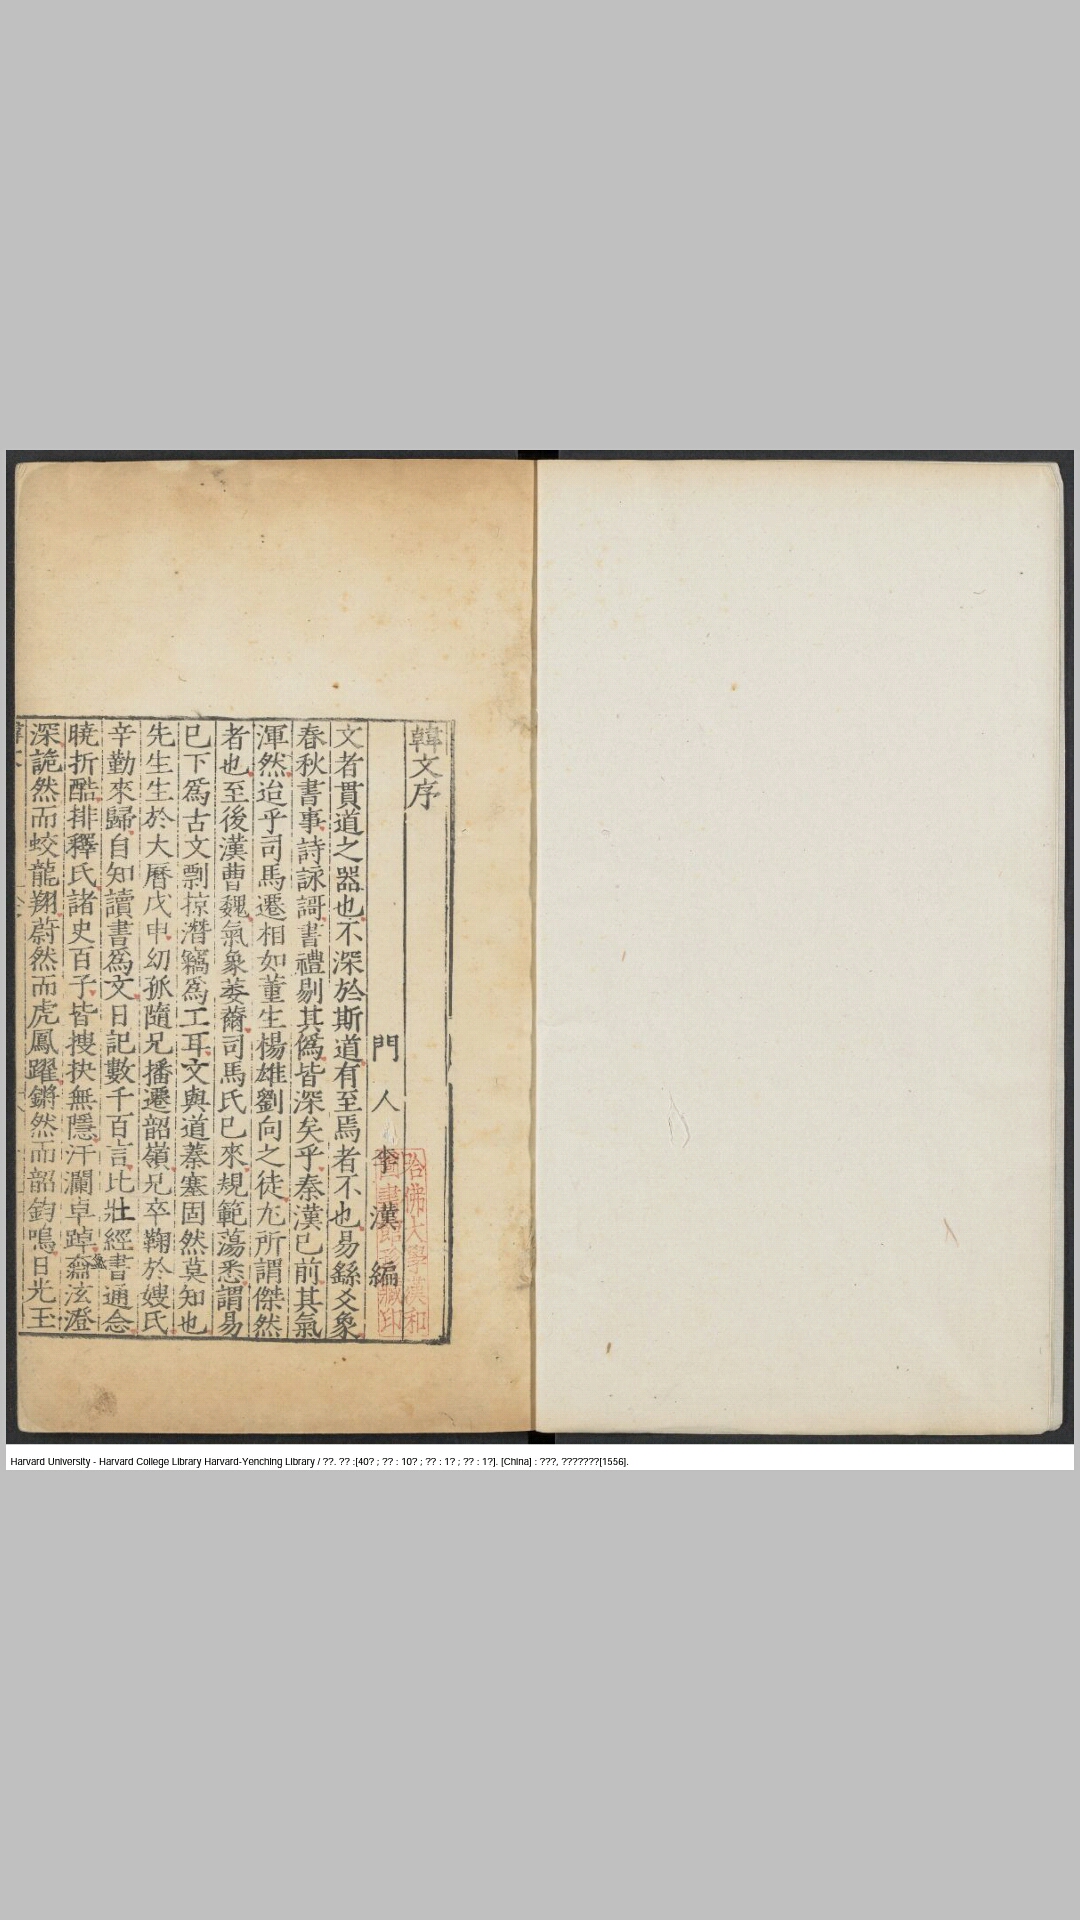 韓文序
門人李漢編
文者貫道之器也不深於斯道有至焉者不也易繇爻象
春秋書事詩詠謌書禮剔其僞皆深矣乎秦漢已前其氣
渾然迨乎司馬遷相如董生楊雄劉向之徒尤所謂傑然
者也至後漢曹魏氣象萎薾司馬氏已來規範蕩悉謂易
已下爲古文剽掠潛竊爲工耳文與道蓁塞固然莫知也
先生生於大曆戊申幼孤隨兄播遷韶嶺兄卒鞠於嫂氏
辛勤來歸自知讀書爲文日記數千百言比壯經書通念
曉折酷排釋氏諸史百子皆搜抉無隱汗瀾卓踔奫泫澄
深詭然而蛟龍翔蔚然而虎鳳躍鏘然而韶鈞鳴日光玉
哈佛大學漢和
圖書館珍藏印
Harvard University - Harvard College Library Harvard-Yenching Library / ??. ?? :[40? ; ?? : 10? ; ?? : 1? ; ?? : 1?]. [China] : ???, ???????[1556].